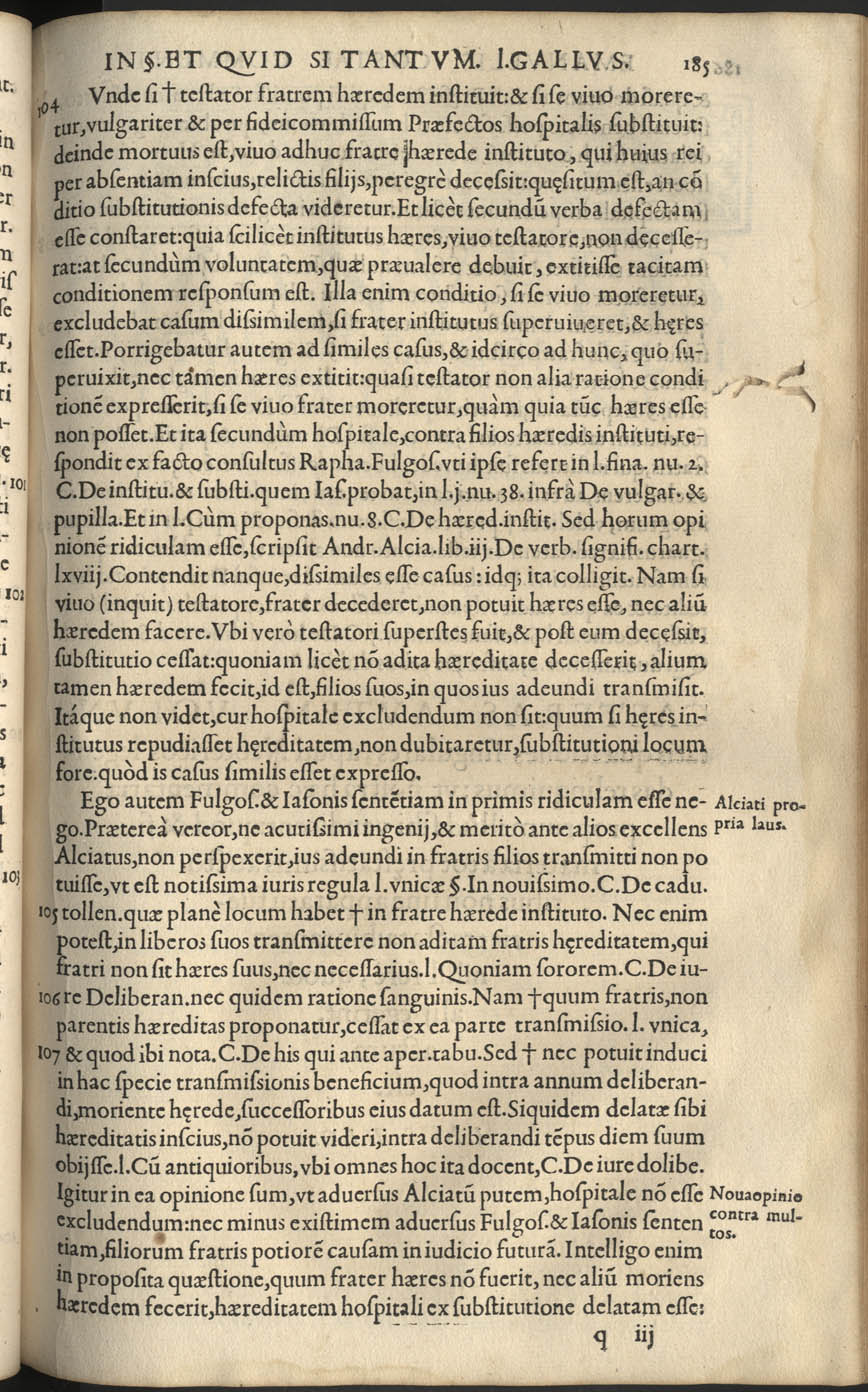 IN §. ET QVID SI TANTVM. l. GALLVS. 185
104 Vnde ſi † teſtator fratrem hæredem inſtituit:& ſi ſe viuo morere-
tur,vulgariter & per fideicommiſſum Præfectos hoſpitalis ſubſtituit:
deinde mortuus eſt,viuo adhuc fratre hærede inſtituto, qui huius rei
per abſentiam inſcius,relictis filijs,peregrè deceſsit:quęſitum eſt,an cō
ditio ſubſtitutionis defecta videretur.Et licèt ſecundũ verba defectam
eſſe conſtaret:quia ſcilicèt inſtitutus hæres,viuo teſtatore,non deceſſe-
rat:at ſecundùm voluntatem,quæ præualere debuit, extitiſſe tacitam
conditionem reſponſum eſt. Illa enim conditio, ſi ſe viuo moreretur,
excludebat caſum diſsimilem,ſi frater inſtitutus ſuperuiueret,& hęres
eſſet.Porrigebatur autem ad ſimiles caſus,& idcirco ad hunc, quo ſu-
peruixit,nec tamen hæres extitit:quaſi teſtator non alia ratione condi
tionē expreſſerit,ſi ſe viuo frater moreretur,quàm quia tūc hæres eſſe
non poſſet.Et ita ſecundùm hoſpitale,contra filios hæredis inſtituti,re-
ſpondit ex facto conſultus Rapha.Fulgoſ.vti ipſe refert in l.fina. nu. 2.
C.De inſtitu.& ſubſti.quem Iaſ.probat,in l.j.nu. 38. infrà De vulgar. &
pupilla.Et in l.Cùm proponas.nu.8.C.De hæred.inſtit. Sed horum opi
nionē ridiculam eſſe,ſcripſit Andr.Alcia.lib.iij.De verb. ſignifi. chart.
lxviij.Contendit nanque,diſsimiles eſſe caſus : idq; ita colligit. Nam ſi
viuo (inquit) teſtatore,frater decederet,non potuit hæres eſſe, nec aliũ
hæredem facere.Vbi verò teſtatori ſuperſtes fuit,& poſt eum deceſsit,
ſubſtitutio ceſſat:quoniam licèt nō adita hæreditate deceſſerit, alium
tamen hæredem fecit,id eſt,filios ſuos,in quos ius adeundi tranſmiſit.
Itáque non videt,cur hoſpitale excludendum non ſit:quum ſi hęres in-
ſtitutus repudiaſſet hęreditatem,non dubitaretur,ſubſtitutioni locum
fore.quòd is caſus ſimilis eſſet expreſſo.
Ego autem Fulgoſ.& Iaſonis ſentētiam in primis ridiculam eſſe ne-
Alciati pro-
pria laus.
go.Prætereà vereor,ne acutiſsimi ingenij,& meritò ante alios excellens
Alciatus,non perſpexerit,ius adeundi in fratris filios tranſmitti non po
tuiſſe,vt eſt notiſsima iuris regula l.vnicæ §.In nouiſsimo.C.De cadu.
105 tollen.quæ planè locum habet † in fratre hærede inſtituto. Nec enim
poteſt,in liberos ſuos tranſmittere non aditam fratris hęreditatem,qui
fratri non ſit hæres ſuus,nec neceſſarius.l.Quoniam ſororem.C.De iu-
106 re Deliberan.nec quidem ratione ſanguinis.Nam †quum fratris,non
parentis hæreditas proponatur,ceſſat ex ea parte tranſmiſsio. l. vnica,
107 & quod ibi nota.C.De his qui ante aper.tabu.Sed † nec potuit induci
in hac ſpecie tranſmiſsionis beneficium,quod intra annum deliberan-
di,moriente hęrede,ſucceſſoribus eius datum eſt.Siquidem delatæ ſibi
hæreditatis inſcius,nō potuit videri,intra deliberandi tēpus diem ſuum
obijſſe.l.Cũ antiquioribus,vbi omnes hoc ita docent,C.De iure dolibe.
Igitur in ea opinione ſum,vt aduerſus Alciatũ putem,hoſpitale nō eſſe
Noua opinio
contra mul-
tos.
excludendum:nec minus exiſtimem aduerſus Fulgoſ.& Iaſonis ſenten
tiam,filiorum fratris potiorē cauſam in iudicio futurā. Intelligo enim
in propoſita quæſtione,quum frater hæres nō fuerit, nec aliũ moriens
hæredem fecerit,hæreditatem hoſpitali ex ſubſtitutione delatam eſſe:
q iij